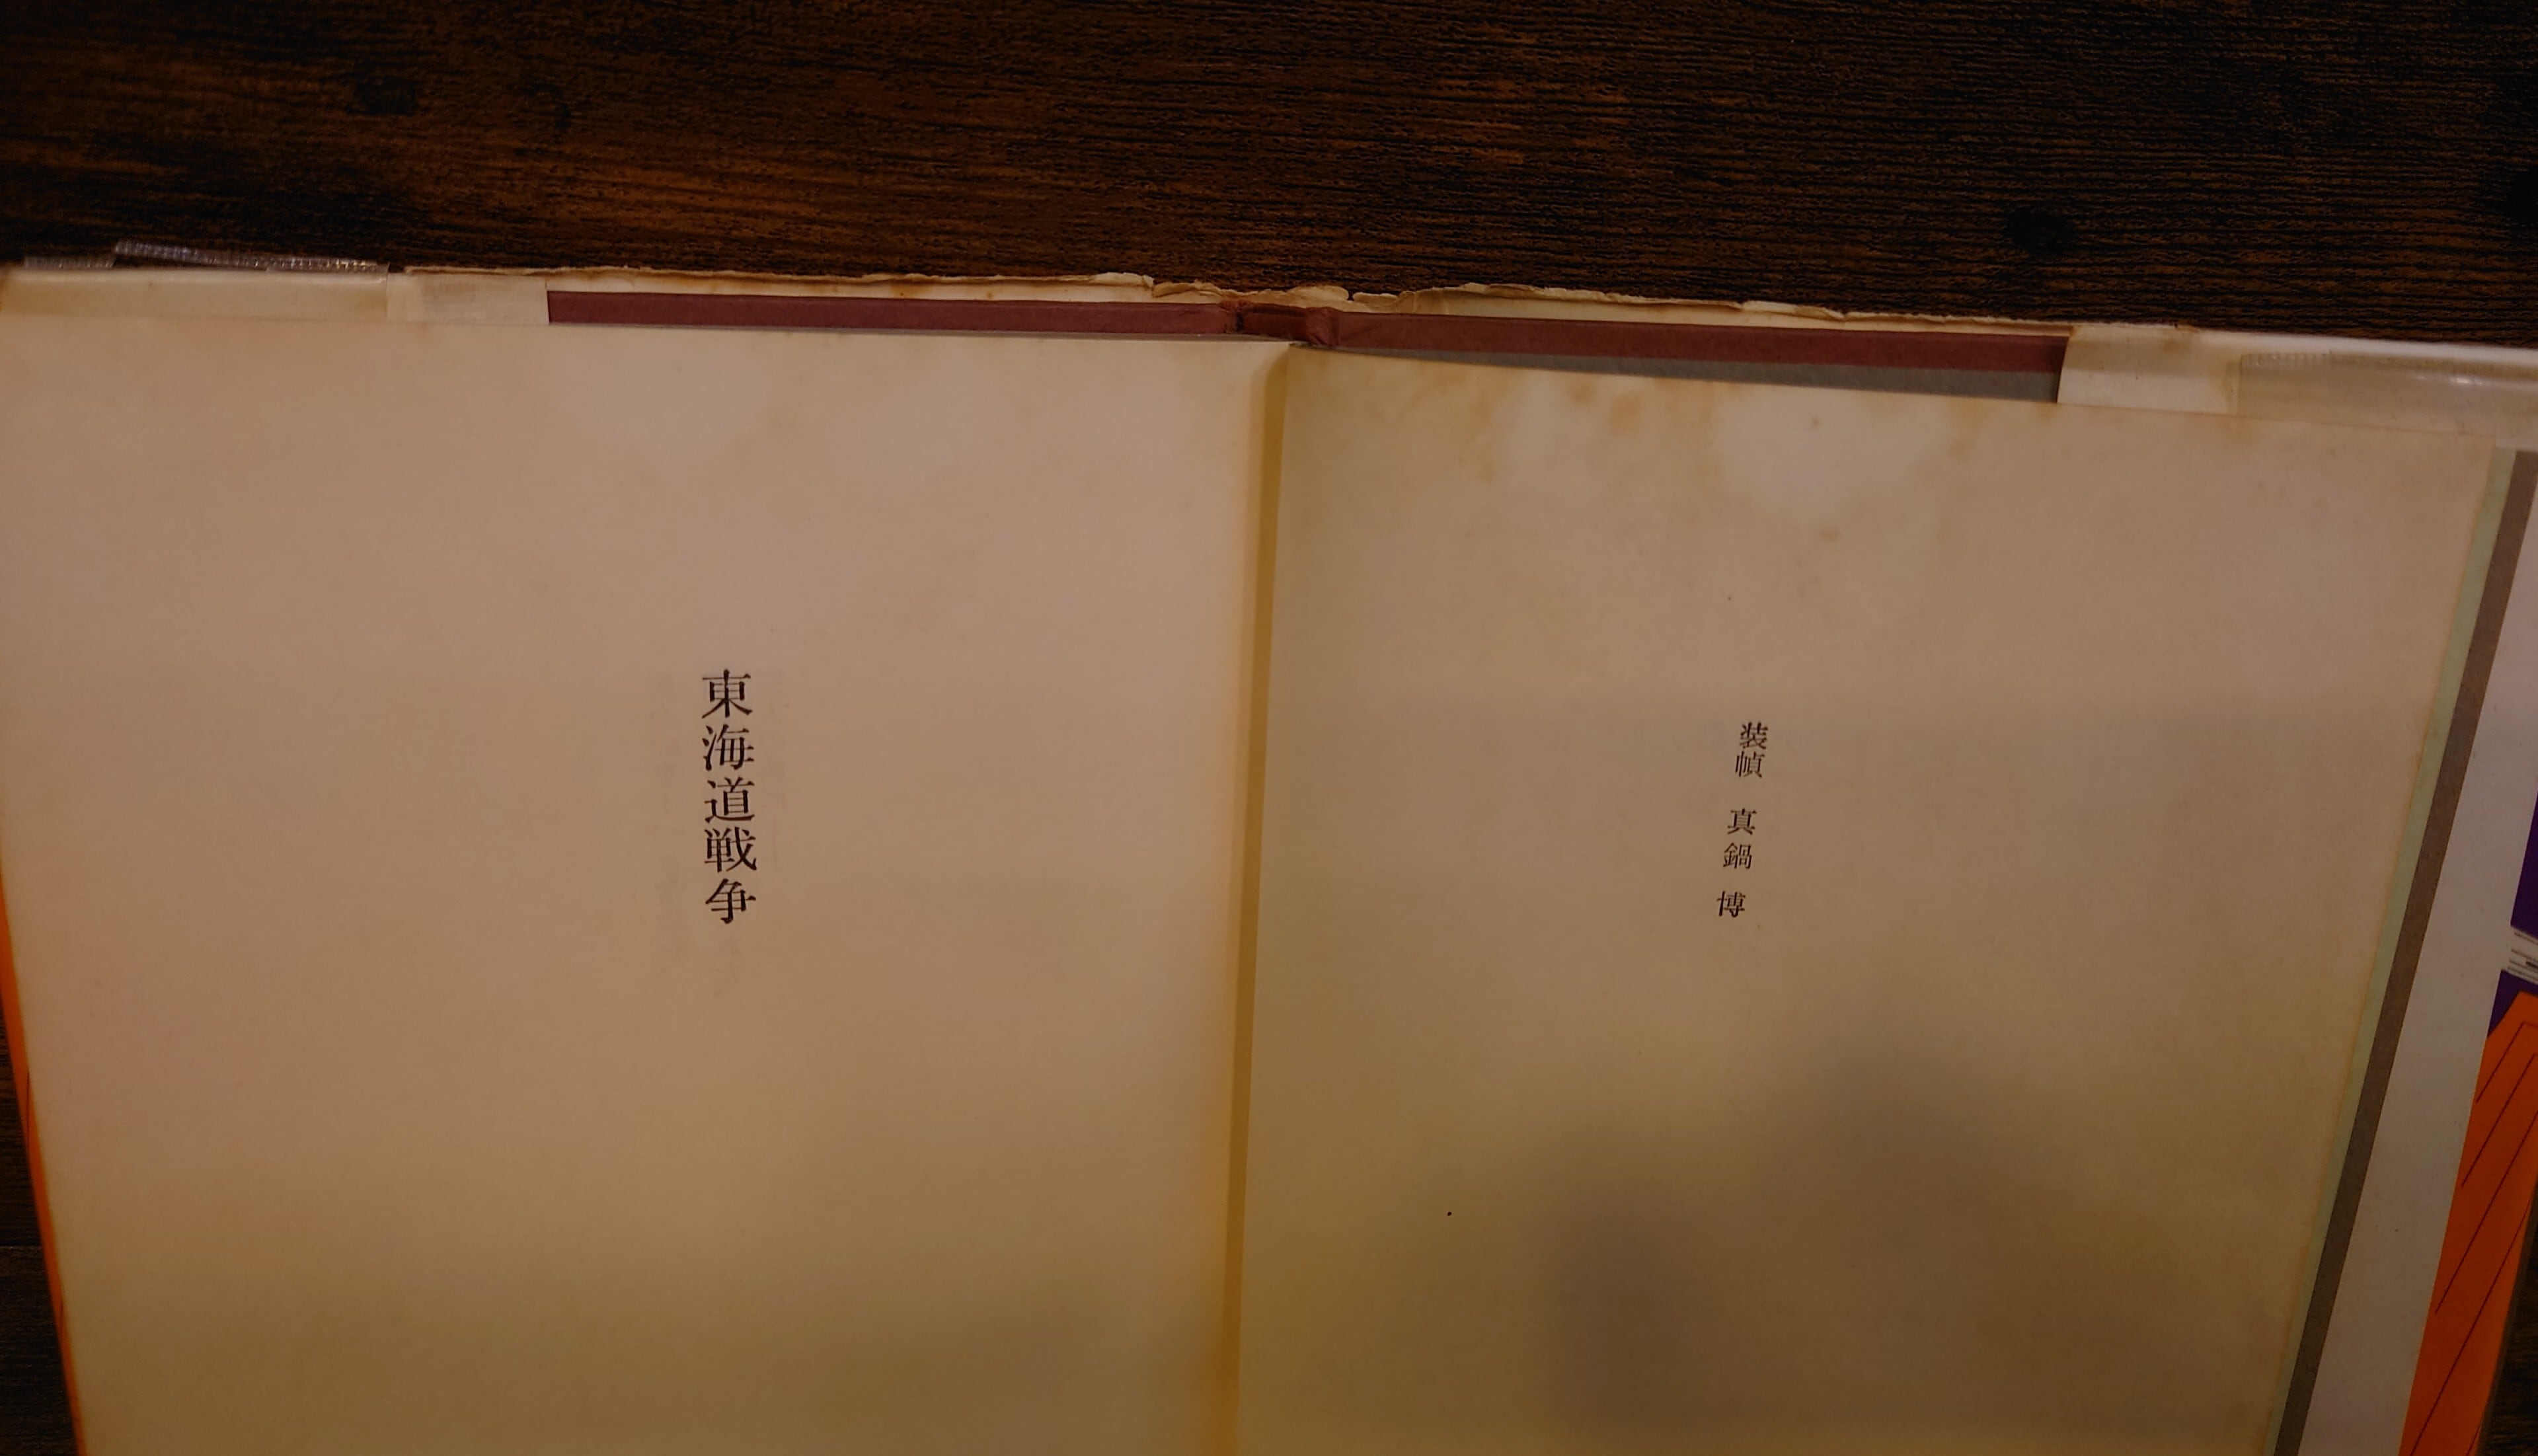 装幀 真鍋 博
東海道戦争